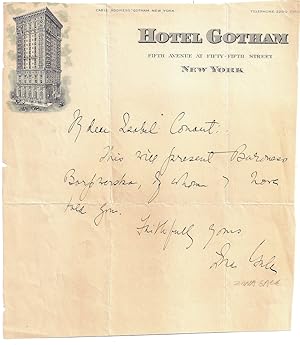 CABLE ADDRESS "GOTHAM" NEW YORK
HOTEL GOTHAM
FIFTH AVENUE AT FIFTY-FIFTH STREET
NEW YORK
My dear Isabel Conant:-
This will present Baroness
of whom I have
told you.
Faithfully yours
Zona Gale
ZONA GALE